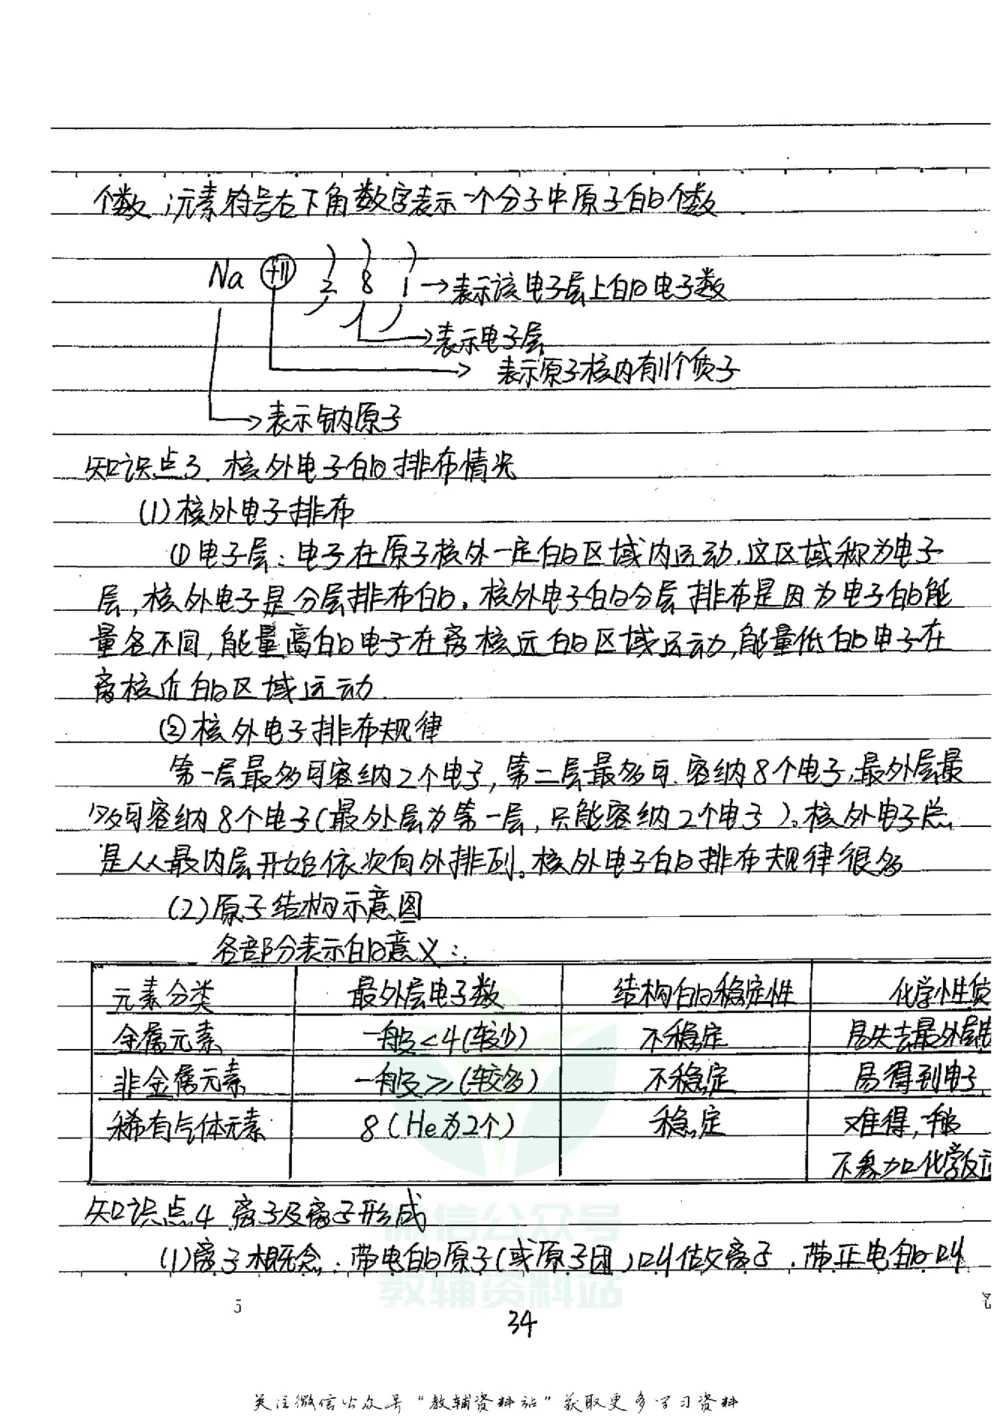 个数;元素符号右下角数字表示一个分子中原子的个数
Na +11 2 8 1 →表示该电子层上的电子数
→表示电子层
→表示原子核内有11个质子
→表示钠原子
知识点3. 核外电子的排布情况
(1)核外电子排布
①电子层:电子在原子核外一定的区域内运动.这区域称为电子
层,核外电子是分层排布的。核外电子的分层排布是因为电子的能
量各不同,能量高的电子在离核远的区域运动,能量低的电子在
离核近的区域运动.
②核外电子排布规律
第一层最多可容纳2个电子,第二层最多可容纳8个电子,最外层最
多可容纳8个电子(最外层为第一层,只能容纳2个电子)。核外电子总
是从最内层开始依次向外排列。核外电子的排布规律很多
(2)原子结构示意图
各部分表示的意义:
元素分类 最外层电子数 结构的稳定性 化学性质
金属元素 一般<4(较少) 不稳定 易失去最外层电
非金属元素 一般≥(较多) 不稳定 易得到电子
稀有气体元素 8(He为2个) 稳定 难得,一般
不参加化学反应
知识点4 离子及离子形成
(1)离子概念:带电的原子(或原子团)叫做离子.带正电的叫
微信公众号
教辅资料站
5
34
关注微信公众号“教辅资料站”获取更多学习资料